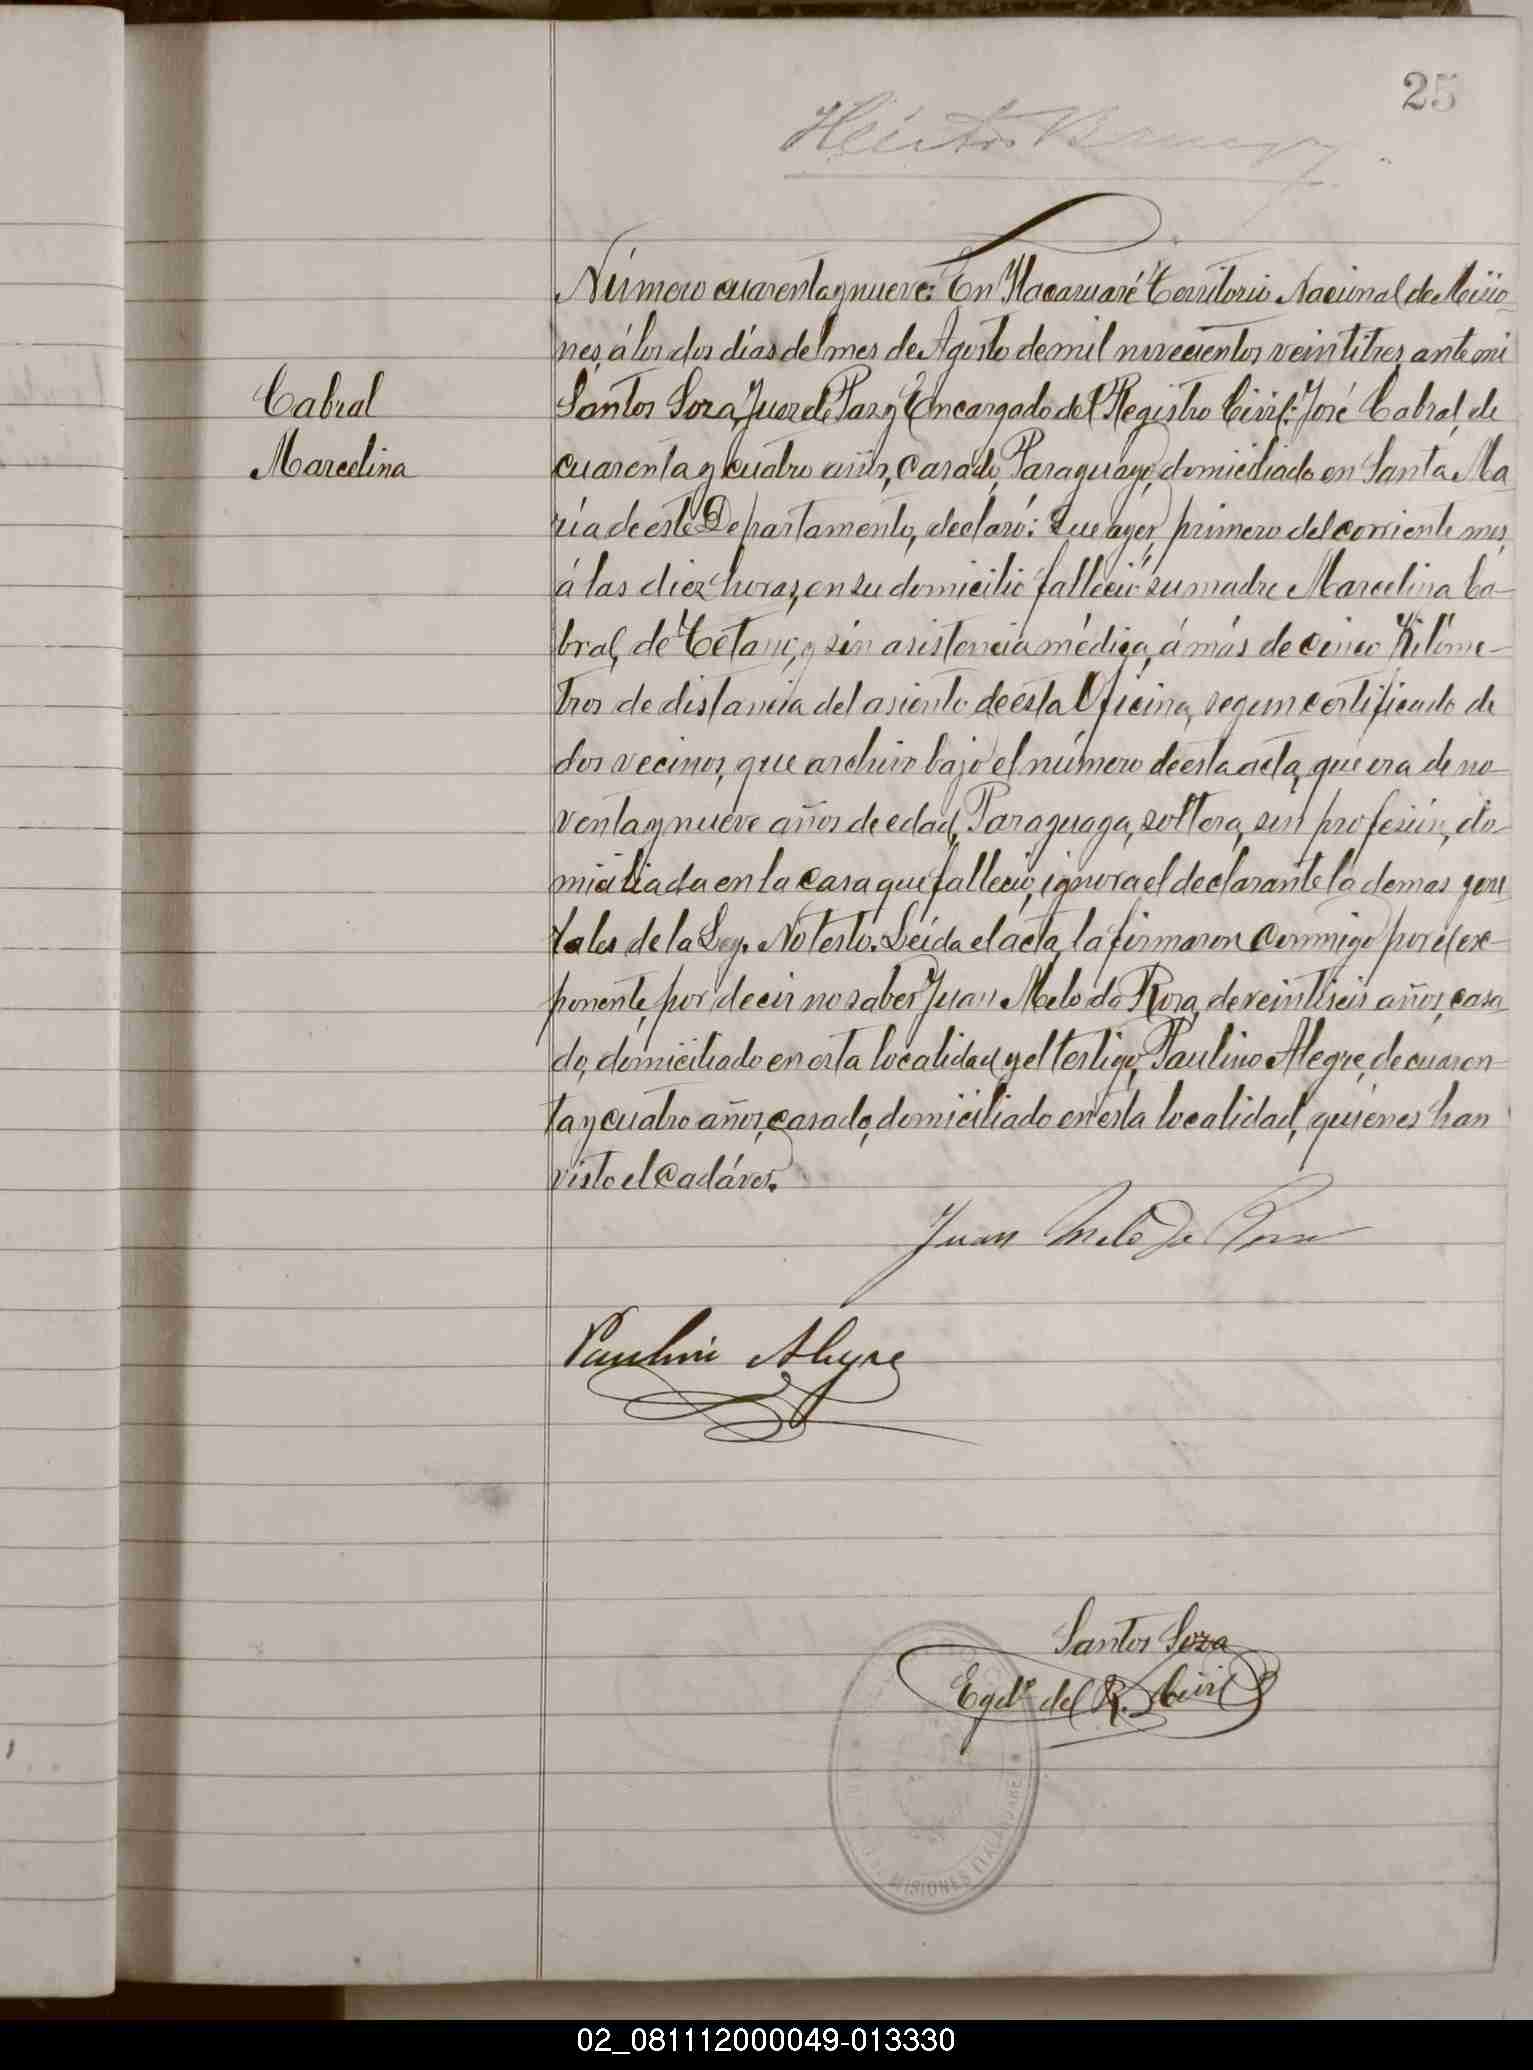 25
Héctor
Número cuarenta y nueve: En Itacaruaré Territorio Nacional de Misio-
nes, á los dos días del mes de Agosto de mil novecientos veintitres, ante mi
Cabral
Marcelina
Santos Soza, Juez de Paz y Encargado del Registro Civil: José Cabral, de
cuarenta y cuatro años, casado, Paraguayo, domiciliado en Santa Ma-
ría de este Departamento, declaró: Que ayer, primero del corriente mes,
á las diez horas, en su domicilio "falleció" su madre Marcelina Ca-
bral, de Tetano, y sin asistencia médica, á más de cinco Kilóme-
tros de distancia del asiento de esta Oficina, segun certificado de
dos vecinos, que archivo bajo el número de esta acta, que era de no-
venta y nueve años de edad, Paraguaya, soltera, sin profesión, do-
miciliada en la casa que falleció, ignora el declarante la demas gene
rales de la Ley. No testo. Leída el acta, la firmaron conmigo por el ex-
ponente, por decir no saber Juan Melo da Rosa, de veintiseis años, casa-
do, domiciliado en esta localidad y el testigo, Paulino Alegre, de cuaren-
ta y cuatro años, casado, domiciliado en esta localidad, quienes han
visto el cadáver.
Juan Melo da Rosa
Paulino Alegre
Santos Soza
Egdo del R. Civil
MISIONES ITACARUARE
02_081112000049-013330